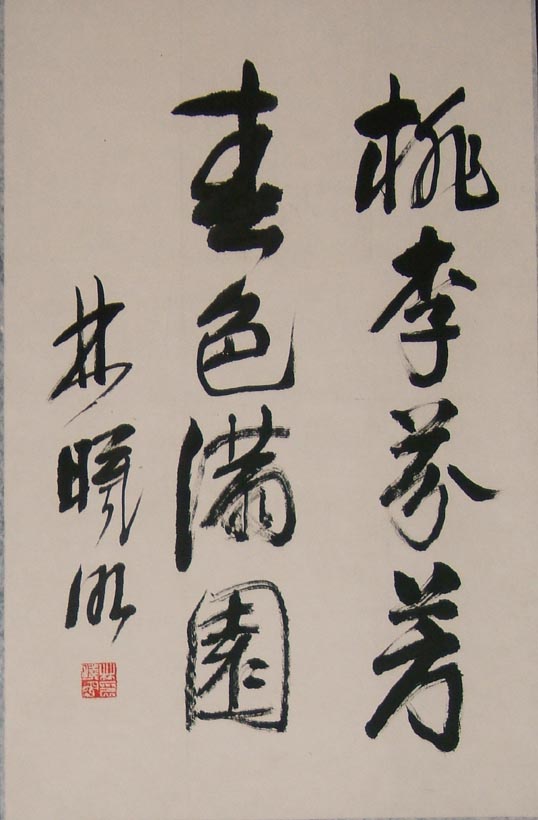 桃李芬芳
春色满園
林曉明